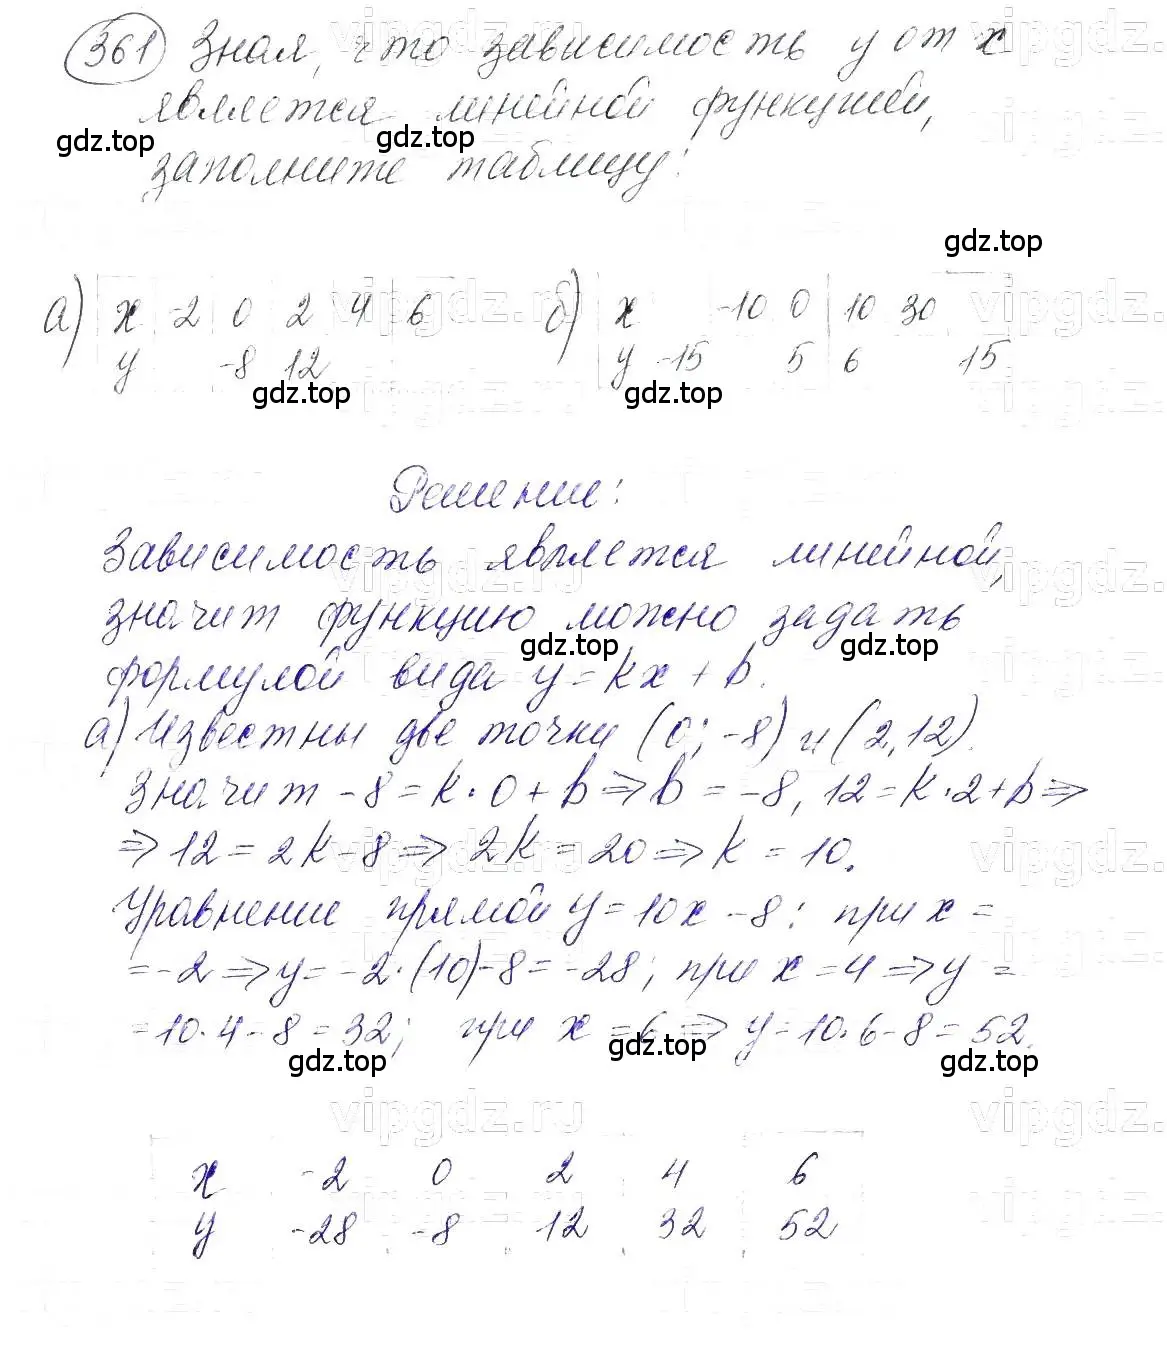 361 Зная, что зависимость y от x
является линейной функцией,
gdz.top gdz.top
заполните таблицу:
gdz.top
а) x -2 0 2 4 6 б) x -10 0 10 30
y -8 12 y -15 5 6 15
gdz.top gdz.top
Решение:
Зависимость является линейной,
значит функцию можно задать
gdz.top gdz.top
формулой вида y = kx + b.
а) Известны две точки (0; -8) и (2, 12).
Значит -8 = k · 0 + b ⇒ b = -8, 12 = k · 2 + b ⇒
⇒ 12 = 2k - 8 ⇒ 2k = 20 ⇒ k = 10.
Уравнение прямой y = 10x - 8: при x =
= -2 ⇒ y = -2 · (10) - 8 = -28; при x = 4 ⇒ y =
= 10 · 4 - 8 = 32; при x = 6 ⇒ y = 10 · 6 - 8 = 52.
gdz.top gdz.top gdz.top
vipgdz.ru vipgdz.ru
x -2 0 2 4 6
y -28 -8 12 32 52